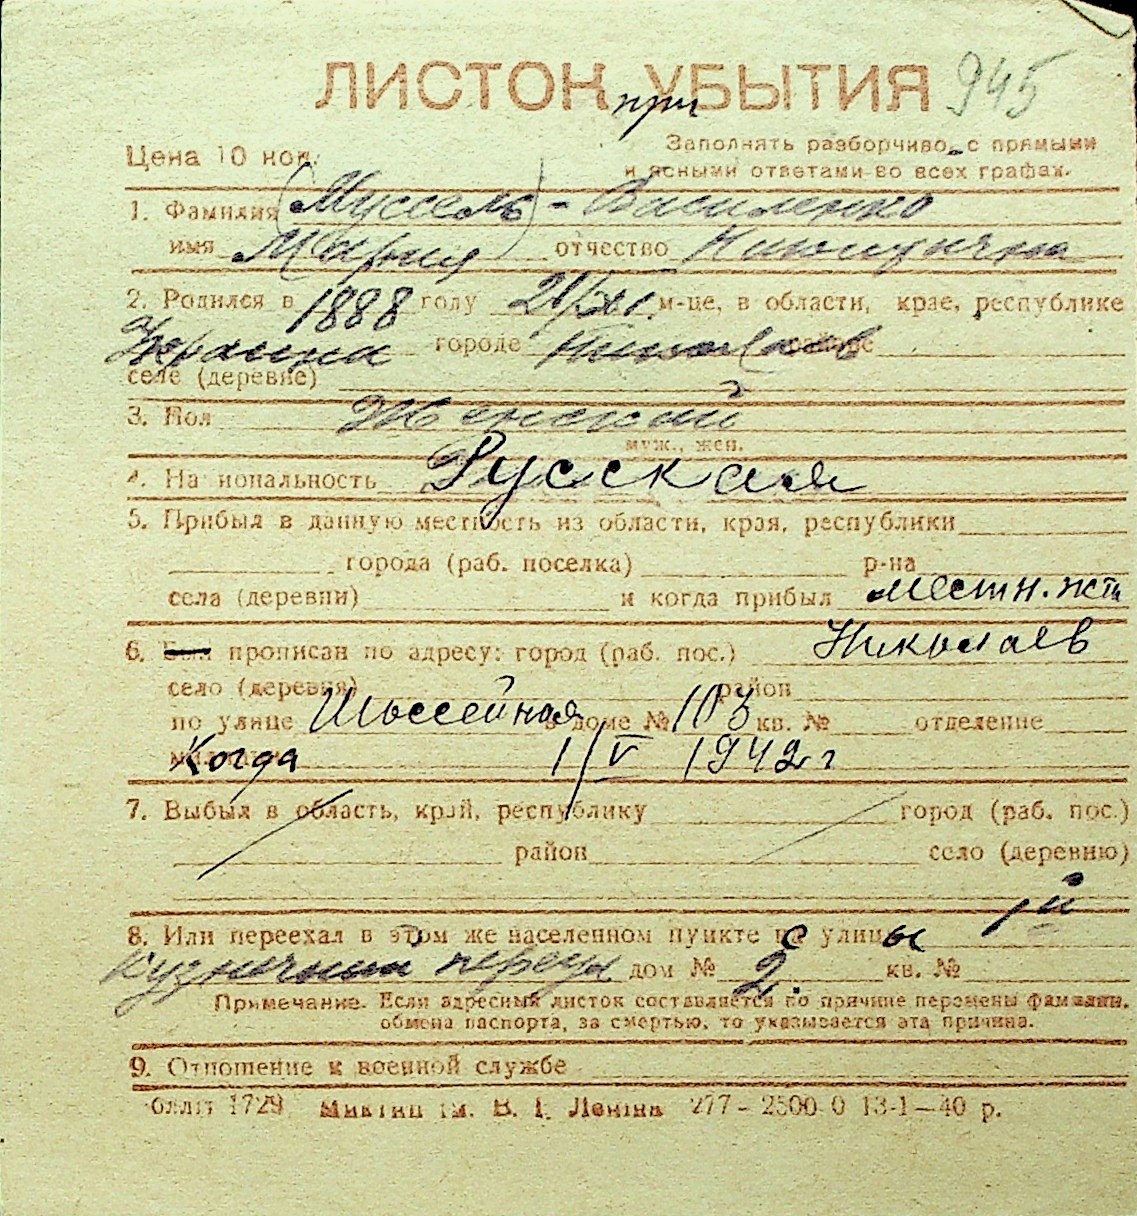 ЛИСТОК при УБЫТИЯ 945
Цена 10 коп.
Заполнять разборчиво, с прямыми
и ясными ответами во всех графах.
1. Фамилия (Муссель) - Василенко
имя Мария отчество
2. Родился в 1888 году м-це, в области, крае, республике
Украина городе Николаев районе
селе (деревне)
3. Пол Женский
муж., жен.
4. Национальность Русская
5. Прибыл в данную местность из области, края, республики
города (раб. поселка) р-на
села (деревни) и когда прибыл местн. жит
6. Был прописан по адресу: город (раб. пос.) Николаев
село (деревня) район
по улице Шоссейная в доме № 103 кв. № отделение
Когда 1/V 1942 г
7. Выбыл в область, край, республику город (раб. пос.)
район село (деревню)
8. Или переехал в этом же населенном пункте с улицы 1й
Кузнечный переул дом № 2. кв. №
Примечание. Если адресный листок составляется по причине перемены фамилии,
обмена паспорта, за смертью, то указывается эта причина.
9. Отношение к военной службе
обліт 1729 ім. В. І. Леніна 277 - 2500 0 13-1—40 р.